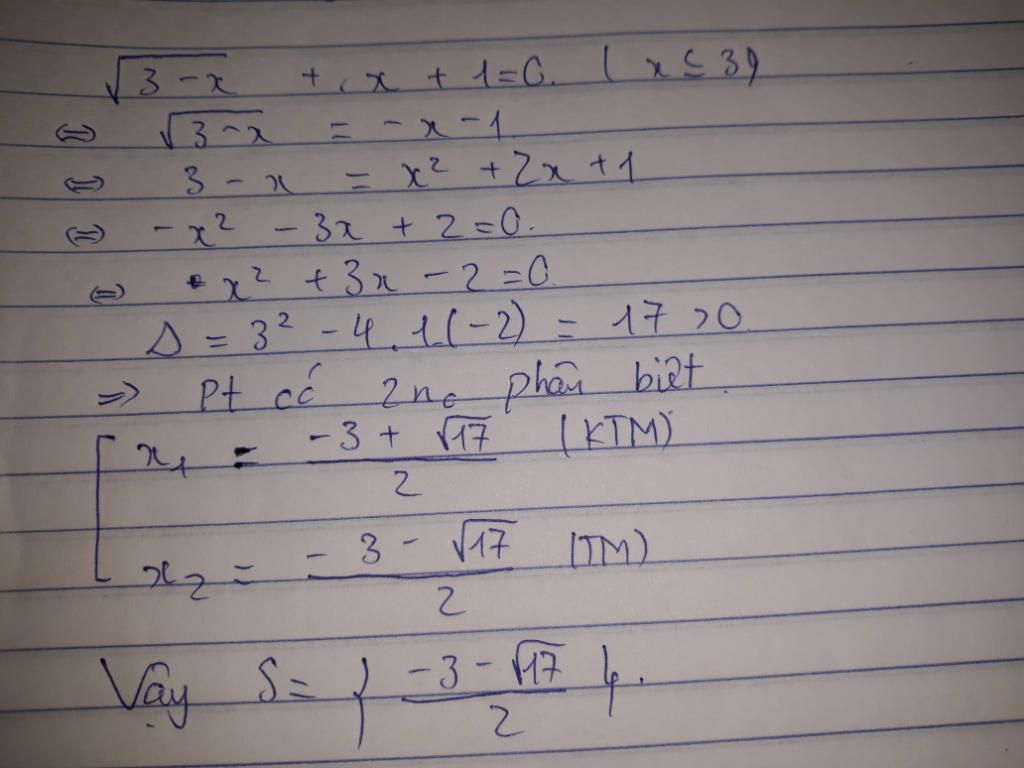 √3-x + x + 1=0. ( x ≤ 3)
⇔ √3-x = -x-1
⇔ 3 - x = x² + 2x + 1
⇔ -x² - 3x + 2 = 0.
⇔ x² + 3x - 2 = 0
Δ = 3² - 4.1.(-2) = 17 > 0
=> Pt có 2 no phân biệt.
x₁ = (-3 + √17)/2 (KTM)
x₂ = (-3 - √17)/2 (TM)
Vậy S = { (-3 - √17)/2 }.